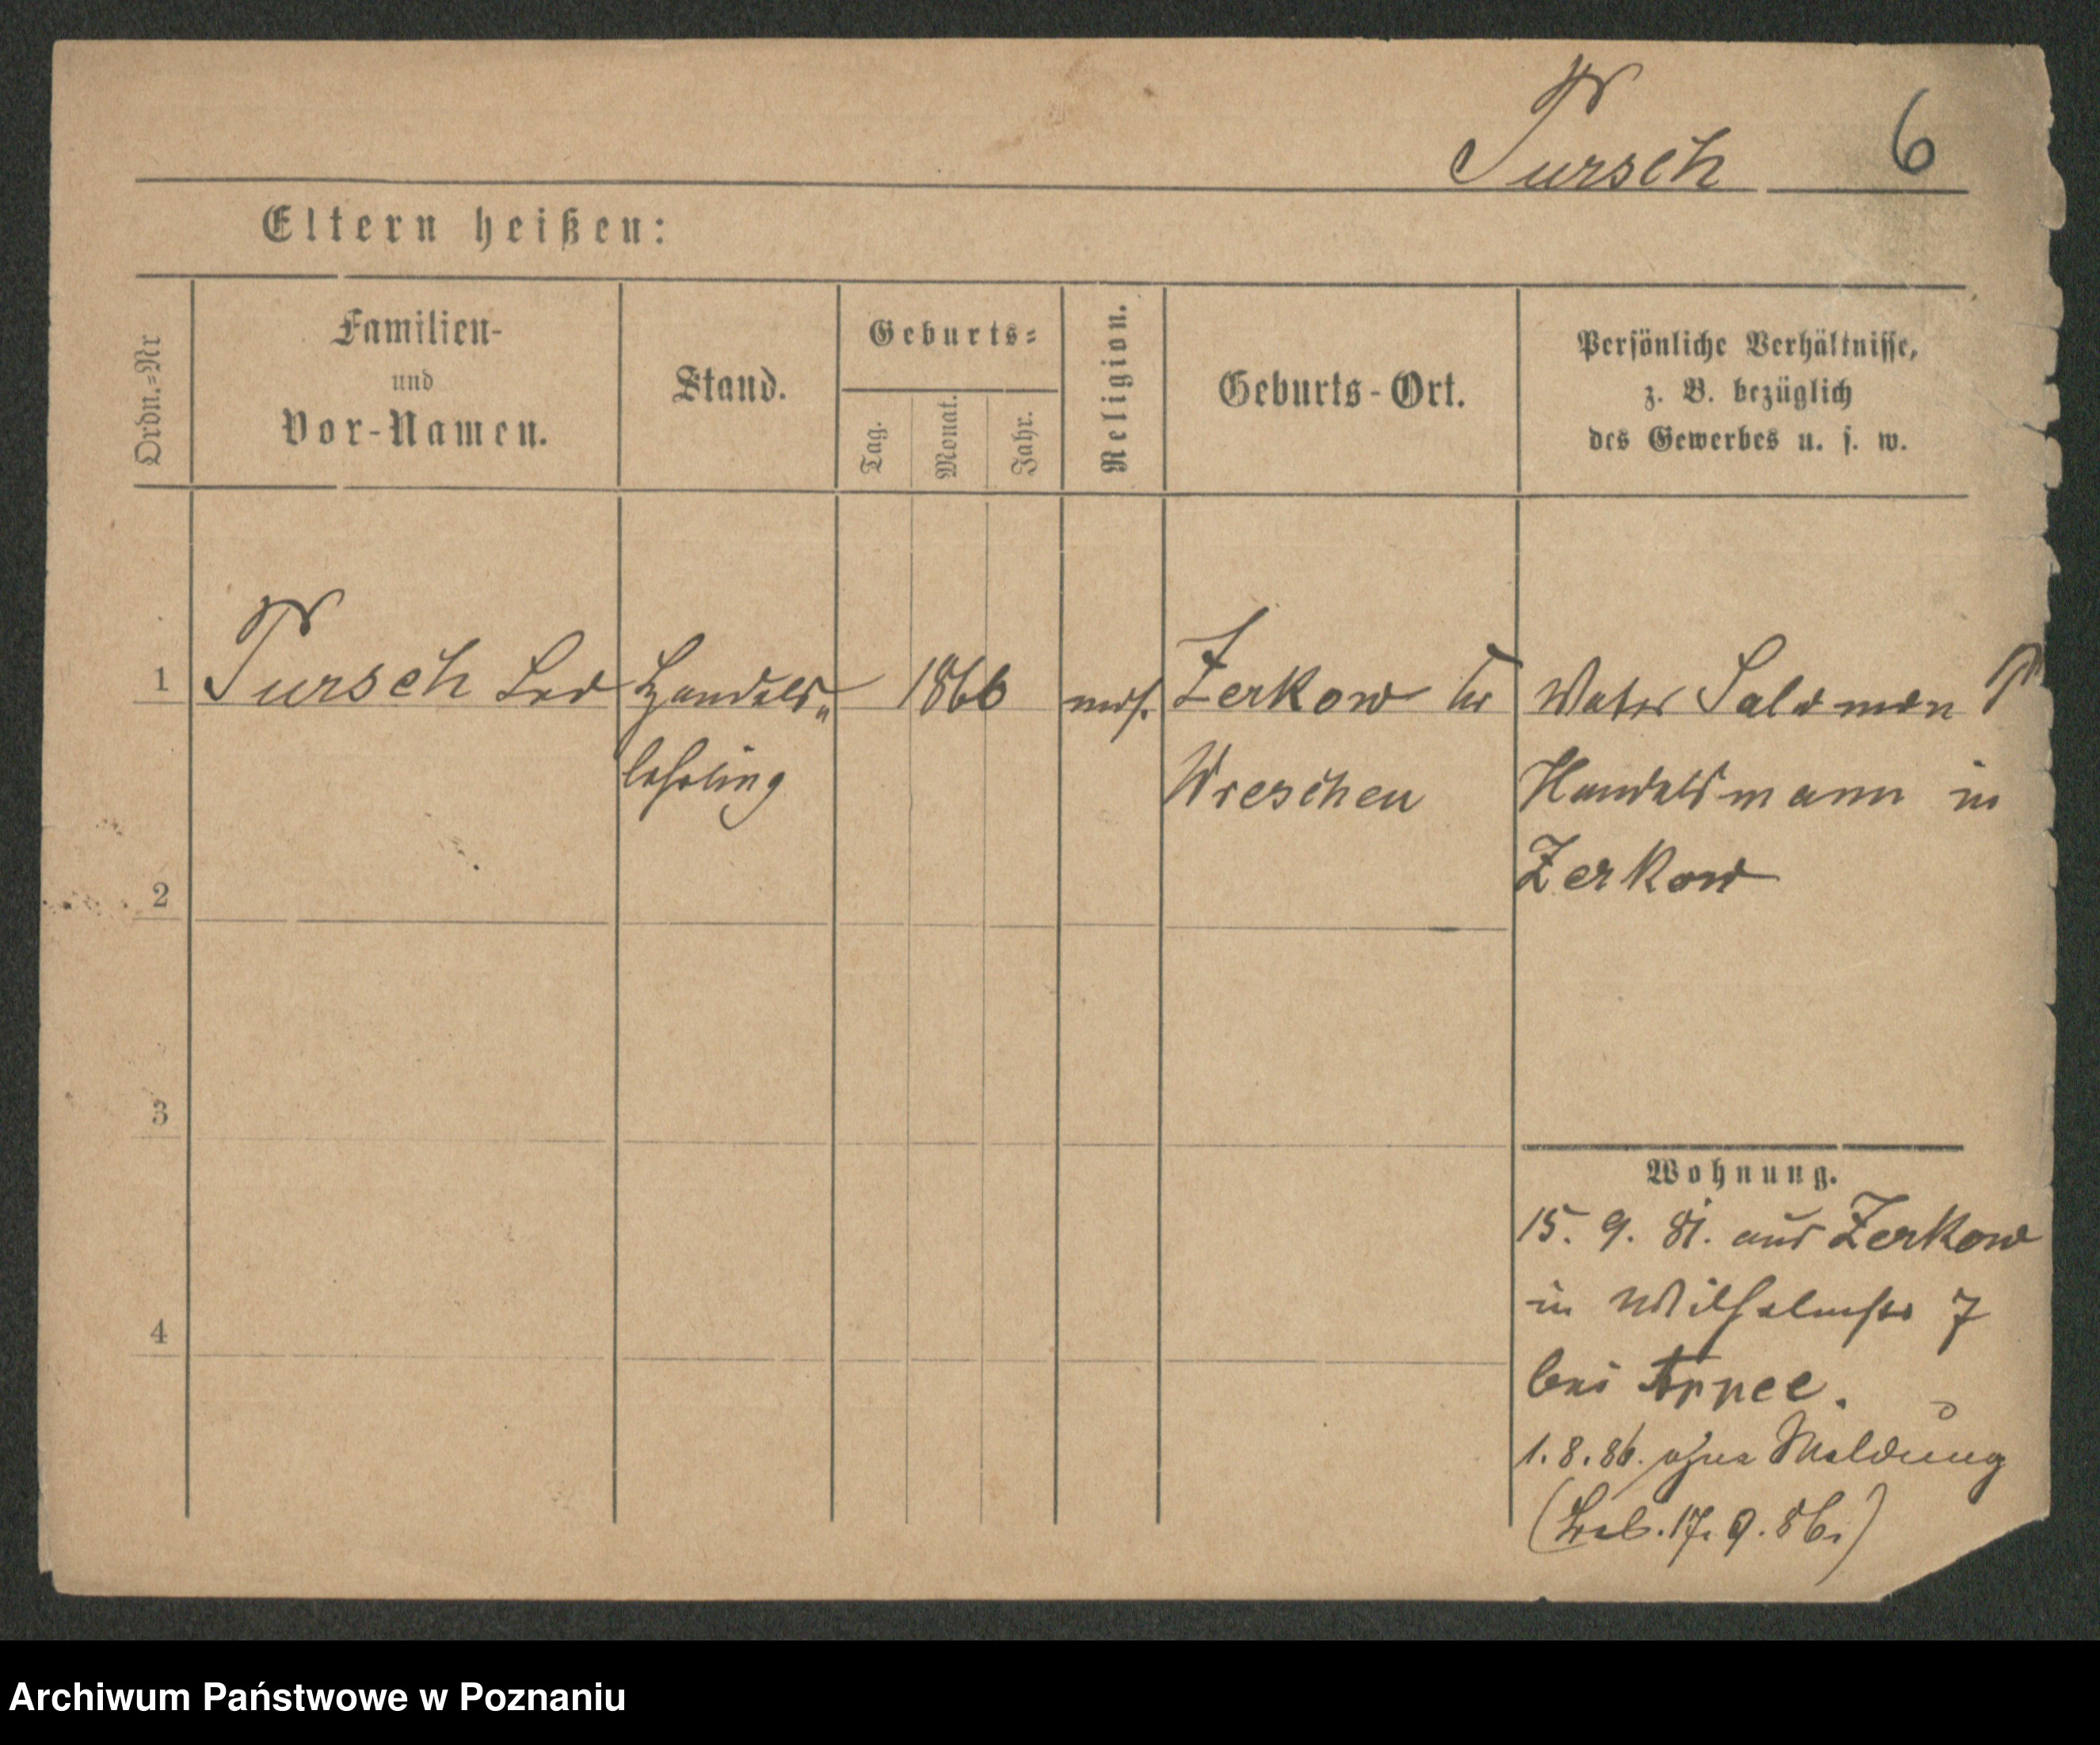 Tursch 6
Eltern heißen:
Ordn.=Nr
Familien-
und
Vor-Namen.
Stand.
Geburts=
Tag.
Monat.
Jahr.
Religion.
Geburts-Ort.
Persönliche Verhältnisse,
z. B. bezüglich
des Gewerbes u. s. w.
1 Tursch Leo Handels 1866 mos. Zerkow Kr Vater Salomon T
lehrling Wreschen Handelsmann in
Zerkow
2
3
Wohnung.
15. 9. 81. aus Zerkow
in Wilhelmstr 7
4
bei
1. 8. 86. ohne Meldung
17. 9. 86.)
Archiwum Państwowe w Poznaniu